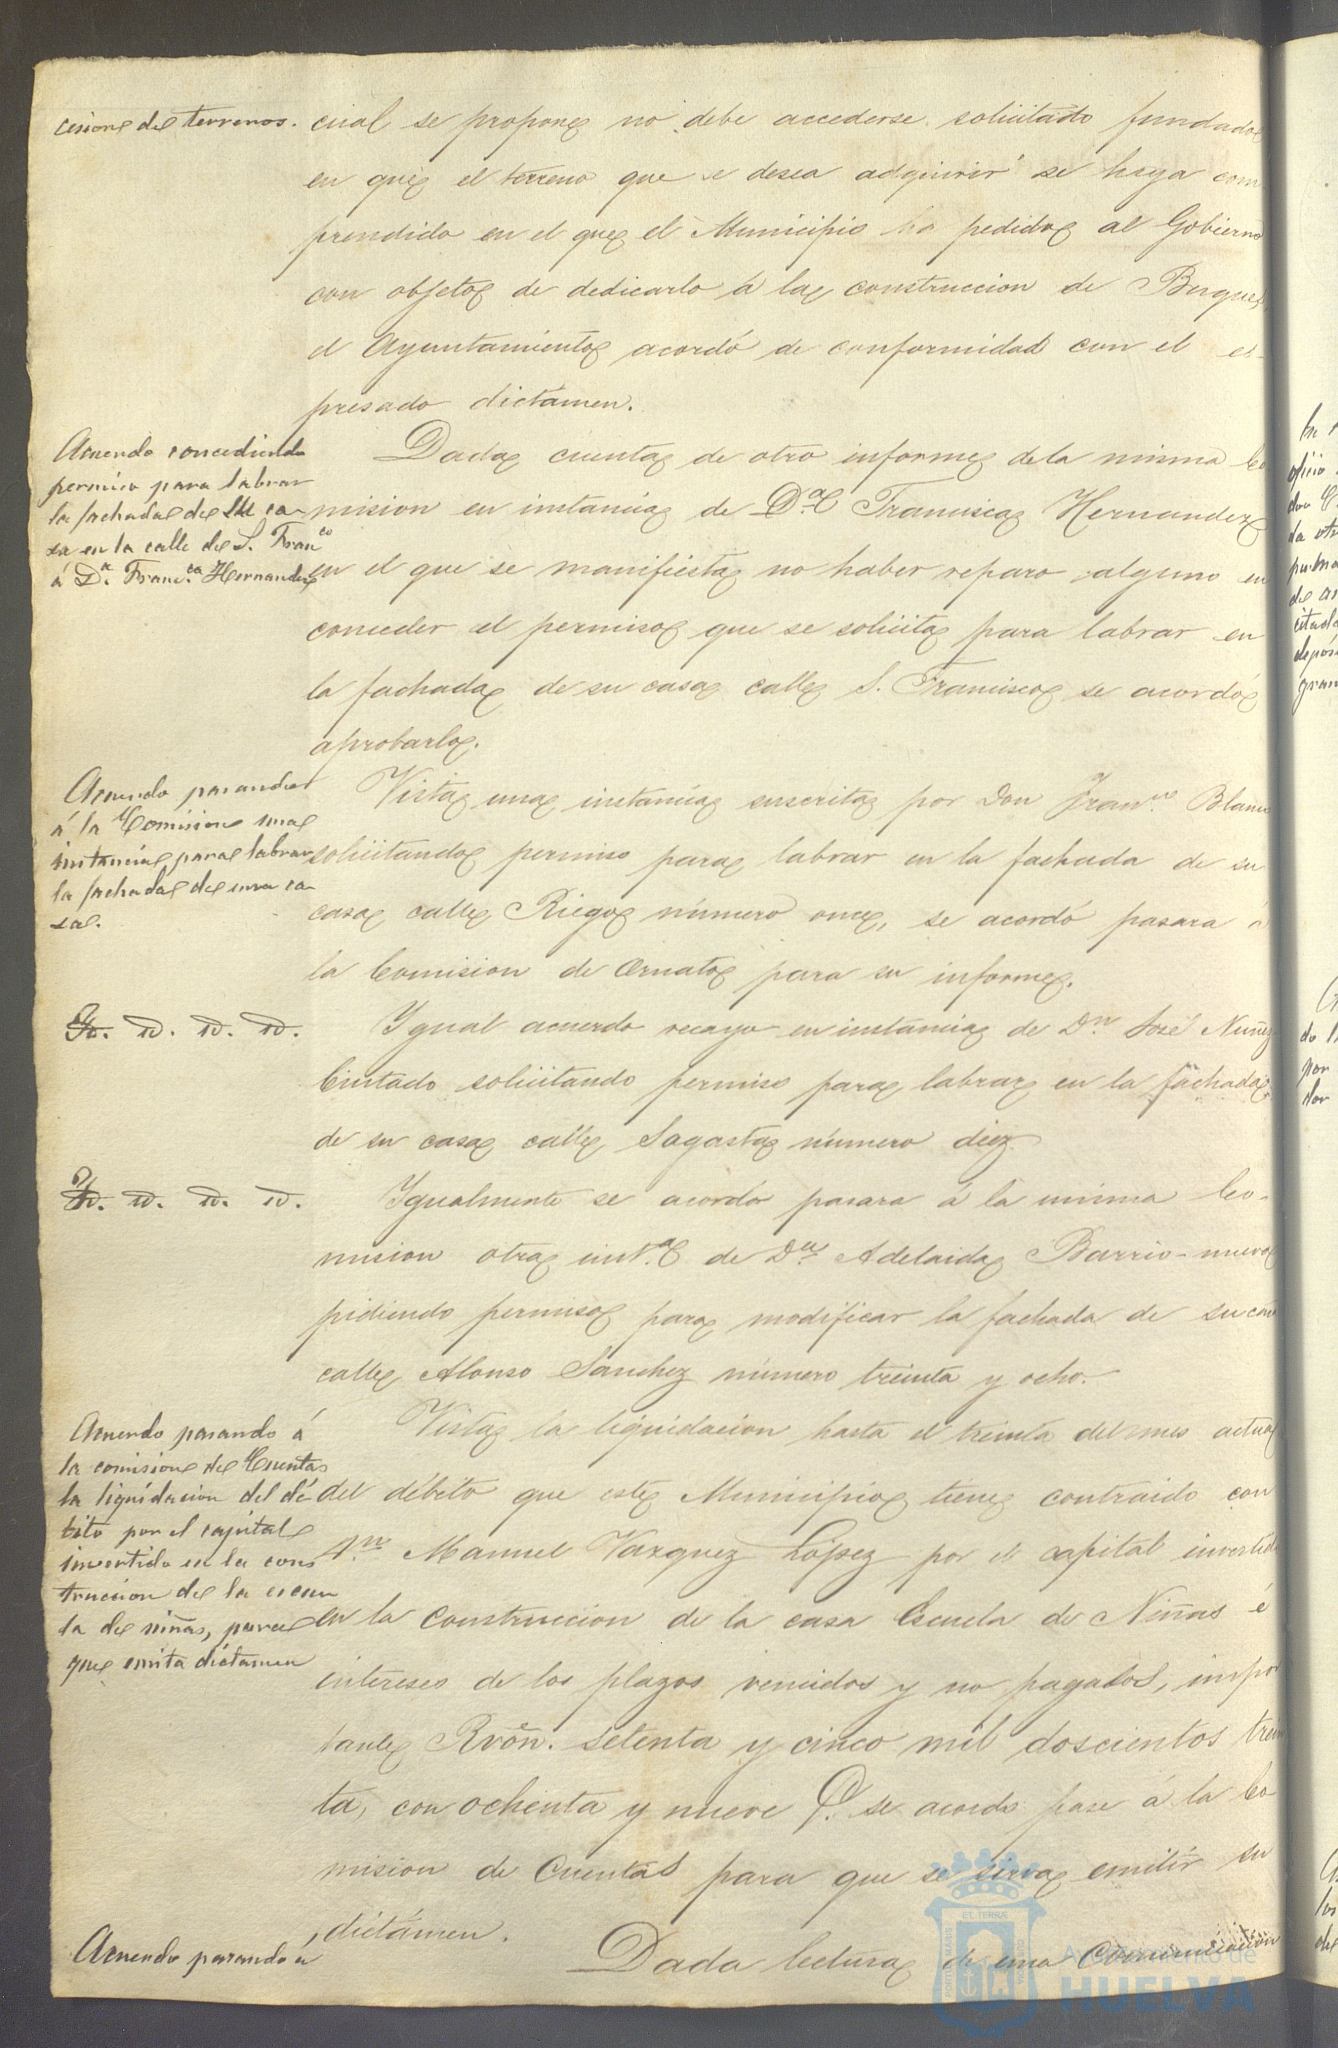 cesion de terrenos.
cual se propone no debe accederse solicitado fundado
en que el terreno que se desea adquirir se haya com
prendido en el que el Municipio ha pedido al Gobierno
con objeto de dedicarlo á la construccion de Buques,
el Ayuntamiento acordó de conformidad con el es-
presado dictámen.
Acuerdo concediendo
permiso para labrar
la fachada de su ca-
sa en la calle de S. Fran.co
á D.a Fran.ca Hernandez
Dada cuenta de otro informe de la misma Co
mision en instancia de D.a Francisca Hernandez
en el que se manifiesta no haber reparo alguno en
conceder el permiso que se solicita para labrar en
la fachada de su casa calle S. Francisco se acordó
aprobarlo.
Acuerdo pasando
á la Comision una
instancia para labrar
la fachada de una ca-
sa.
Vista una instancia suscrita por Don Fran.co Blanco
solicitando permiso para labrar en la fachada de su
casa calle Riego número once, se acordó pasara á
la Comision de Ornato para su informe.
Yd. id. id. id.
Ygual acuerdo recayo en instancia de D.n José Nuñez
Cintado solicitando permiso para labrar en la fachada
de su casa calle Sagasta número diez
Yd. id. id. id.
Ygualmente se acordó pasara á la misma Co-
mision otra inst.a de D.a Adelaida Barrio-nuevo
pidiendo permiso para modificar la fachada de su casa
calle Alonso Sanchez número treinta y ocho.
Acuerdo pasando á
la comision de Cuentas
la liquidacion del dé
bito por el capital
invertido en la cons
truccion de la escue
la de niñas, para
que emita dictamen
Vista la liquidacion hasta el treinta del mes actual
del débito que este Municipio tiene contraido con
D.n Manuel Vazquez López por el capital invertido
en la construccion de la casa Escuela de Niñas é
intereses de los plazos vencidos y no pagados, impor
tante Rvón. setenta y cinco mil doscientos trein
ta, con ochenta y nueve C. se acordó pase á la Co
mision de Cuentas para que se sirva emitir su
dictámen.
Acuerdo pasando á
Dada lectura de una Comunicacion
Ayuntamiento de
HUELVA